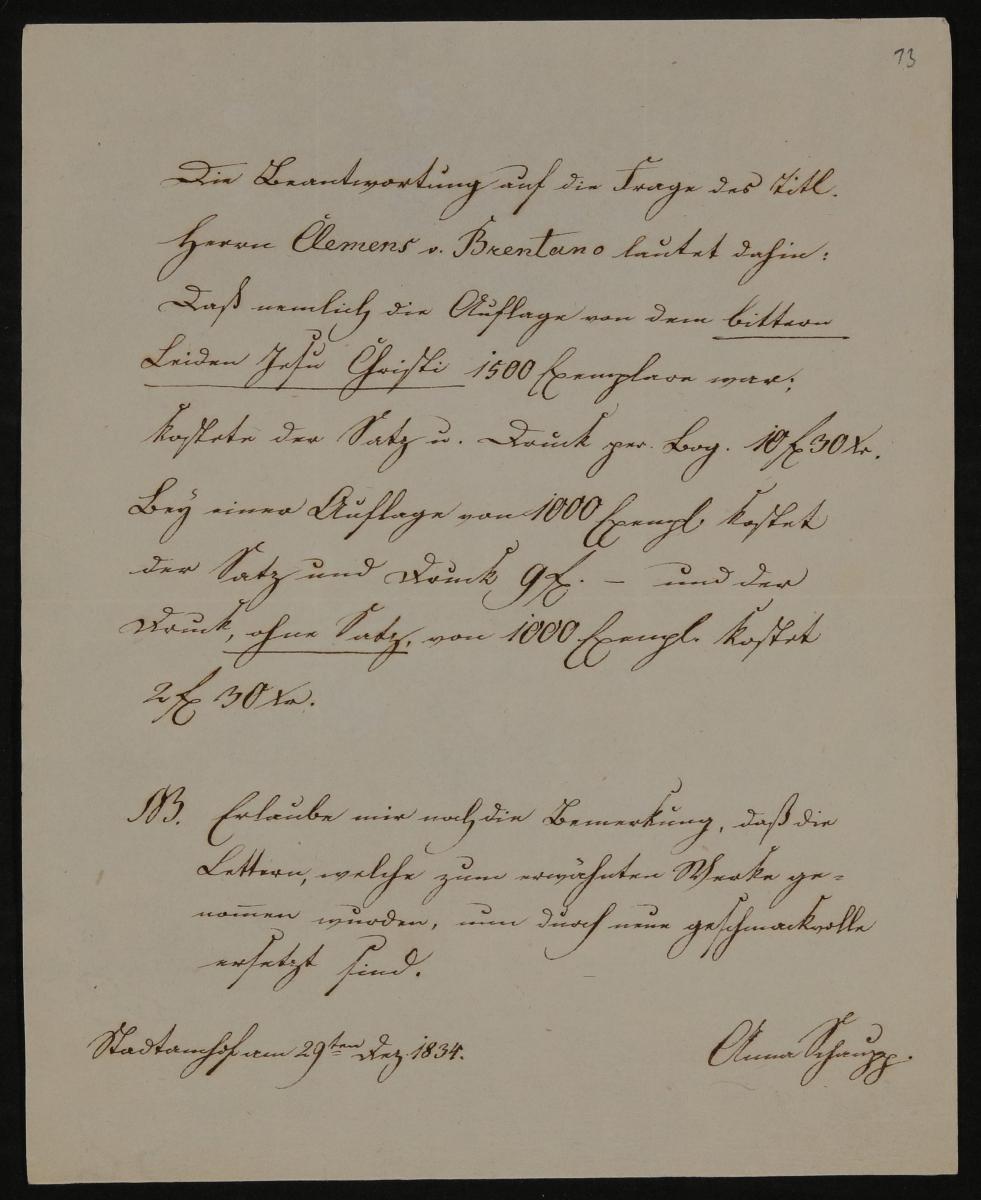 73
Die Beantwortung auf die Frage des Titl.
Herrn Clemens v. Brentano lautet dahin:
Daß nemlich die Auflage von dem bittern
Leiden Jesu Christi 1500 Exemplare war;
kostete der Satz u. Druck per. Bog. 10 f 30 Xr.
Bey einer Auflage von 1000 Exempl. kostet
der Satz und Druck 9 f. – und der
Druck, ohne Satz, von 1000 Exempl. kostet
2 f 30 Xr.
NB. Erlaube mir noch die Bemerkung, daß die
Lettern, welche zum erwähnten Werke ge=
nom̄en wurden, nun durch neue geschmackvolle
ersetzt sind.
Stadtamhof am 29ten Dez. 1834.
Anna Schaupp.